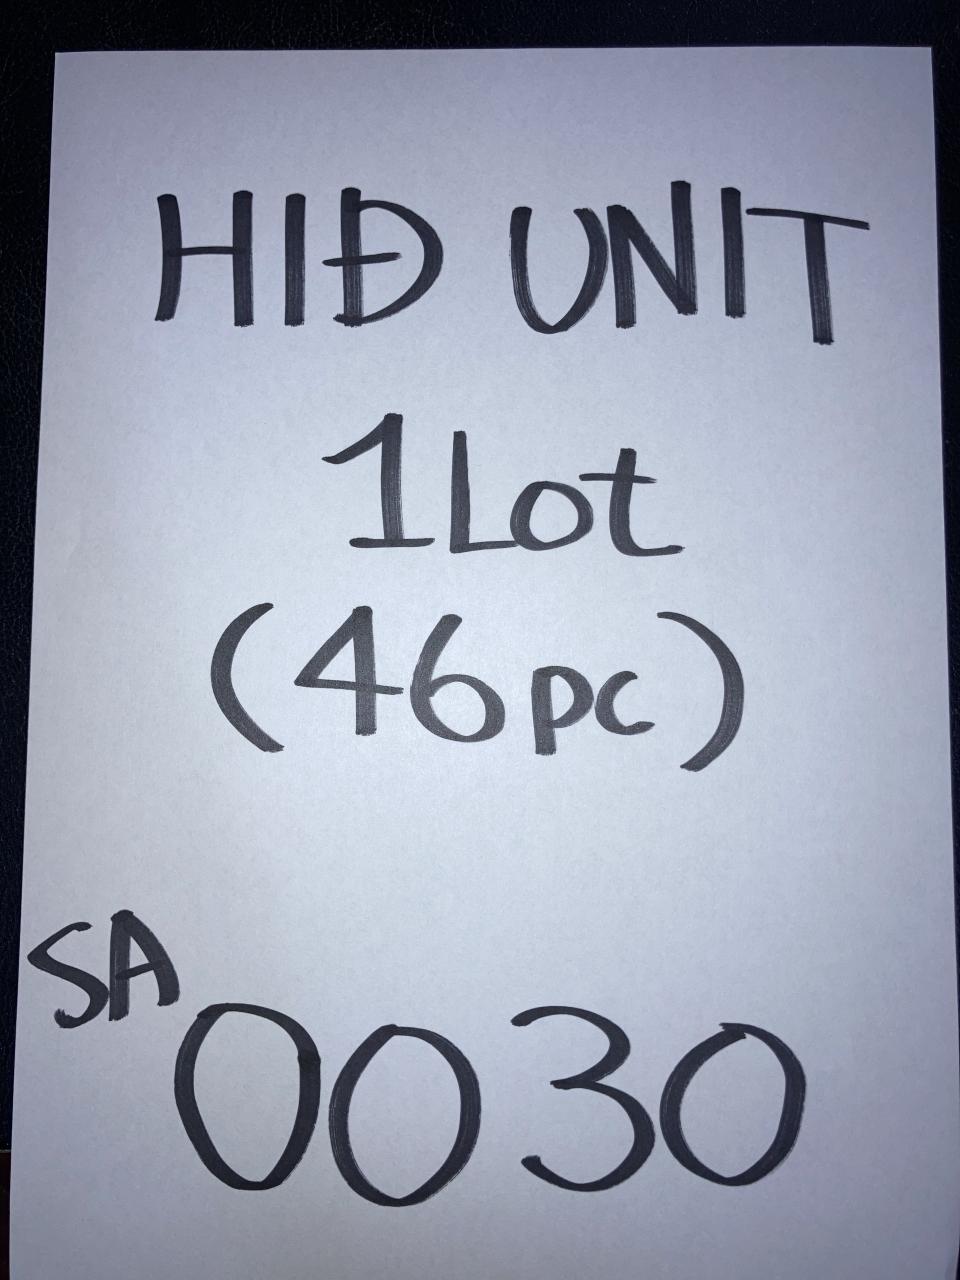 HIĐ UNIT
1Lot
(46pc)
SA
0030